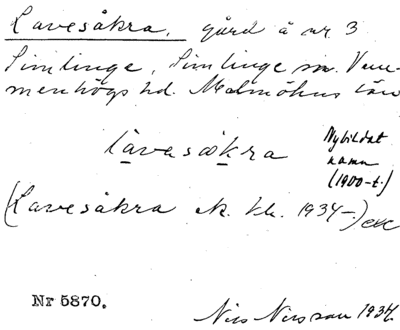 Lavesåkra, gård å nr 3
Simlinge, Simlinge sn. Vem-
menhögs hd. Malmöhus län
lavesåkra
Nybildat
namn
(1900-t.)
(Lavesåkra ek. bl. 1934-.)
Nr 5870.
Nils Nilsson 1934.